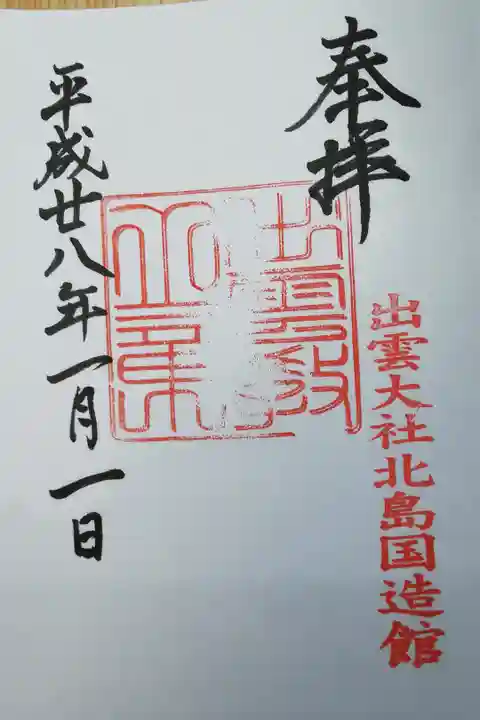 奉拝
出雲大社北島国造館
出雲教
平成廿八年一月一日